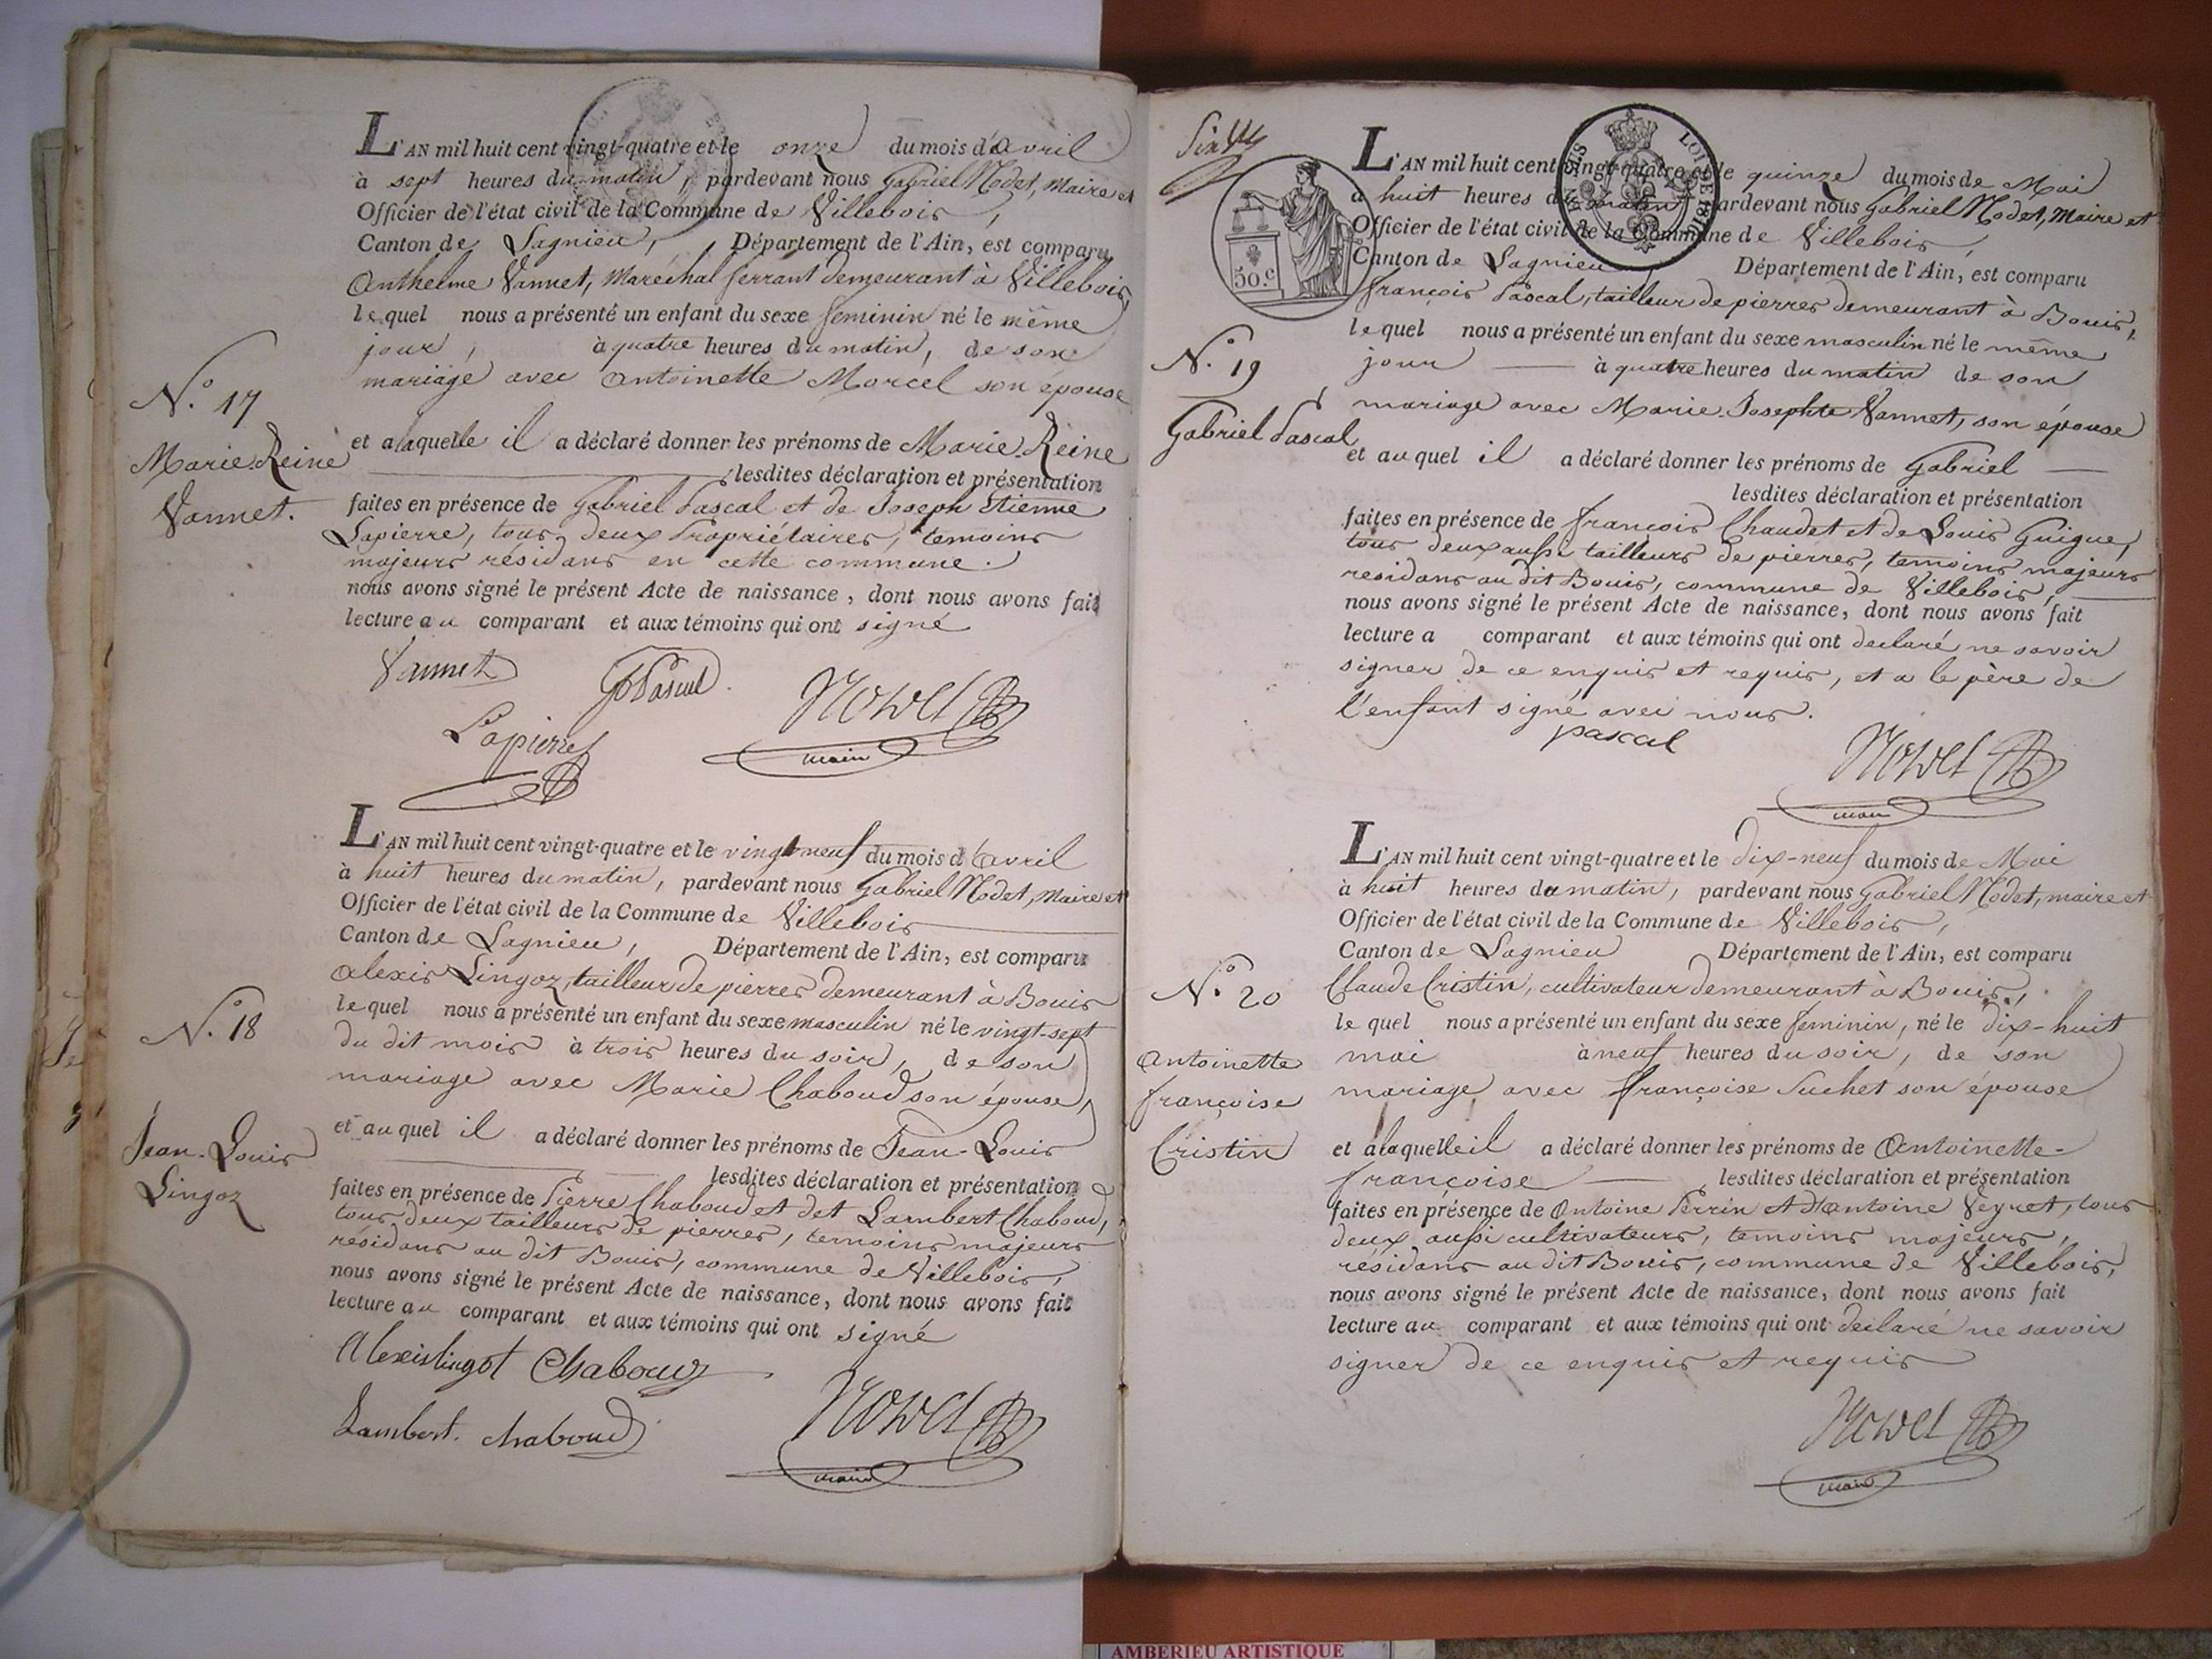 L'AN mil huit cent vingt-quatre et le onze du mois d'avril
à sept heures du matin, pardevant nous Gabriel Nodet, Maire et
Officier de l'état civil de la Commune de Villebois,
Canton de Lagnieu, Département de l'Ain, est comparu
Anthelme Vannet, Maréchal ferrant demeurant à Villebois,
lequel nous a présenté un enfant du sexe feminin né le même
jour, à quatre heures du matin, de son
mariage avec Antoinette Marcel son épouse
N.° 17
Marie Reine
Vannet.
et a laquelle il a déclaré donner les prénoms de Marie Reine
lesdites déclaration et présentation
faites en présence de Gabriel Pascal et de Joseph Etienne
Lapierre, tous deux Propriétaires, temoins
majeurs résidans en cette commune.
nous avons signé le présent Acte de naissance, dont nous avons fait
lecture au comparant et aux témoins qui ont signé
Vannet
Pascal
Lapierre
maire
L'AN mil huit cent vingt-quatre et le vingt neuf du mois d'avril
à huit heures du matin, pardevant nous Gabriel Nodet, Maire et
Officier de l'état civil de la Commune de Villebois
Canton de Lagnieu, Département de l'Ain, est comparu
Alexis Lingoz, tailleur de pierres demeurant à Bouis
lequel nous a présenté un enfant du sexe masculin né le vingt-sept
du dit mois à trois heures du soir, de son
mariage avec Marie Chaboud son épouse,
N.° 18
Jean-Louis
Lingoz
et auquel il a déclaré donner les prénoms de Jean-Louis
lesdites déclaration et présentation
faites en présence de Pierre Chaboud et det Lambert Chaboud,
tous deux tailleurs de pierres, temoins majeurs
résidans au dit Bouis, commune de Villebois,
nous avons signé le présent Acte de naissance, dont nous avons fait
lecture au comparant et aux témoins qui ont signé
Alexis lingot Chaboud
Lambert. chaboud
maire
Six
50.c
LOI DE 1816
N.° 19
Gabriel Pascal
L'AN mil huit cent vingt-quatre et le quinze du mois de Mai
à huit heures du matin pardevant nous Gabriel Nodet, Maire et
Officier de l'état civil de la Commune de Villebois,
Canton de Lagnieu, Département de l'Ain, est comparu
françois Pascal, tailleur de pierres demeurant à Bouis,
lequel nous a présenté un enfant du sexe masculin né le même
jour à quatre heures du matin de son
mariage avec Marie Josephte Vannet, son épouse
et auquel il a déclaré donner les prénoms de Gabriel
lesdites déclaration et présentation
faites en présence de françois Chaudet et de Louis Guigue,
tous deux aussi tailleurs de pierres, temoins majeurs
residans au dit Bouis, commune de Villebois,
nous avons signé le présent Acte de naissance, dont nous avons fait
lecture a comparant et aux témoins qui ont declaré ne savoir
signer de ce enquis et requis, et a le père de
l'enfant signé avec nous.
pascal
maire
L'AN mil huit cent vingt-quatre et le dix-neuf du mois de Mai
à huit heures du matin, pardevant nous Gabriel Nodet, maire et
Officier de l'état civil de la Commune de Villebois,
Canton de Lagnieu Département de l'Ain, est comparu
Claude Cristin, cultivateur demeurant à Bouis,
lequel nous a présenté un enfant du sexe feminin, né le dix-huit
mai à neuf heures du soir, de son
mariage avec françoise Suchet son épouse
N.° 20
Antoinette
françoise
Cristin
et à laquelle il a déclaré donner les prénoms de Antoinette-
françoise lesdites déclaration et présentation
faites en présence de Antoine Perrin et d'Antoine Veyret, tous
deux aussi cultivateurs, temoins majeurs,
résidans au dit Bouis, commune de Villebois,
nous avons signé le présent Acte de naissance, dont nous avons fait
lecture au comparant et aux témoins qui ont declaré ne savoir
signer de ce enquis et requis
maire
AMBERIEU ARTISTIQUE